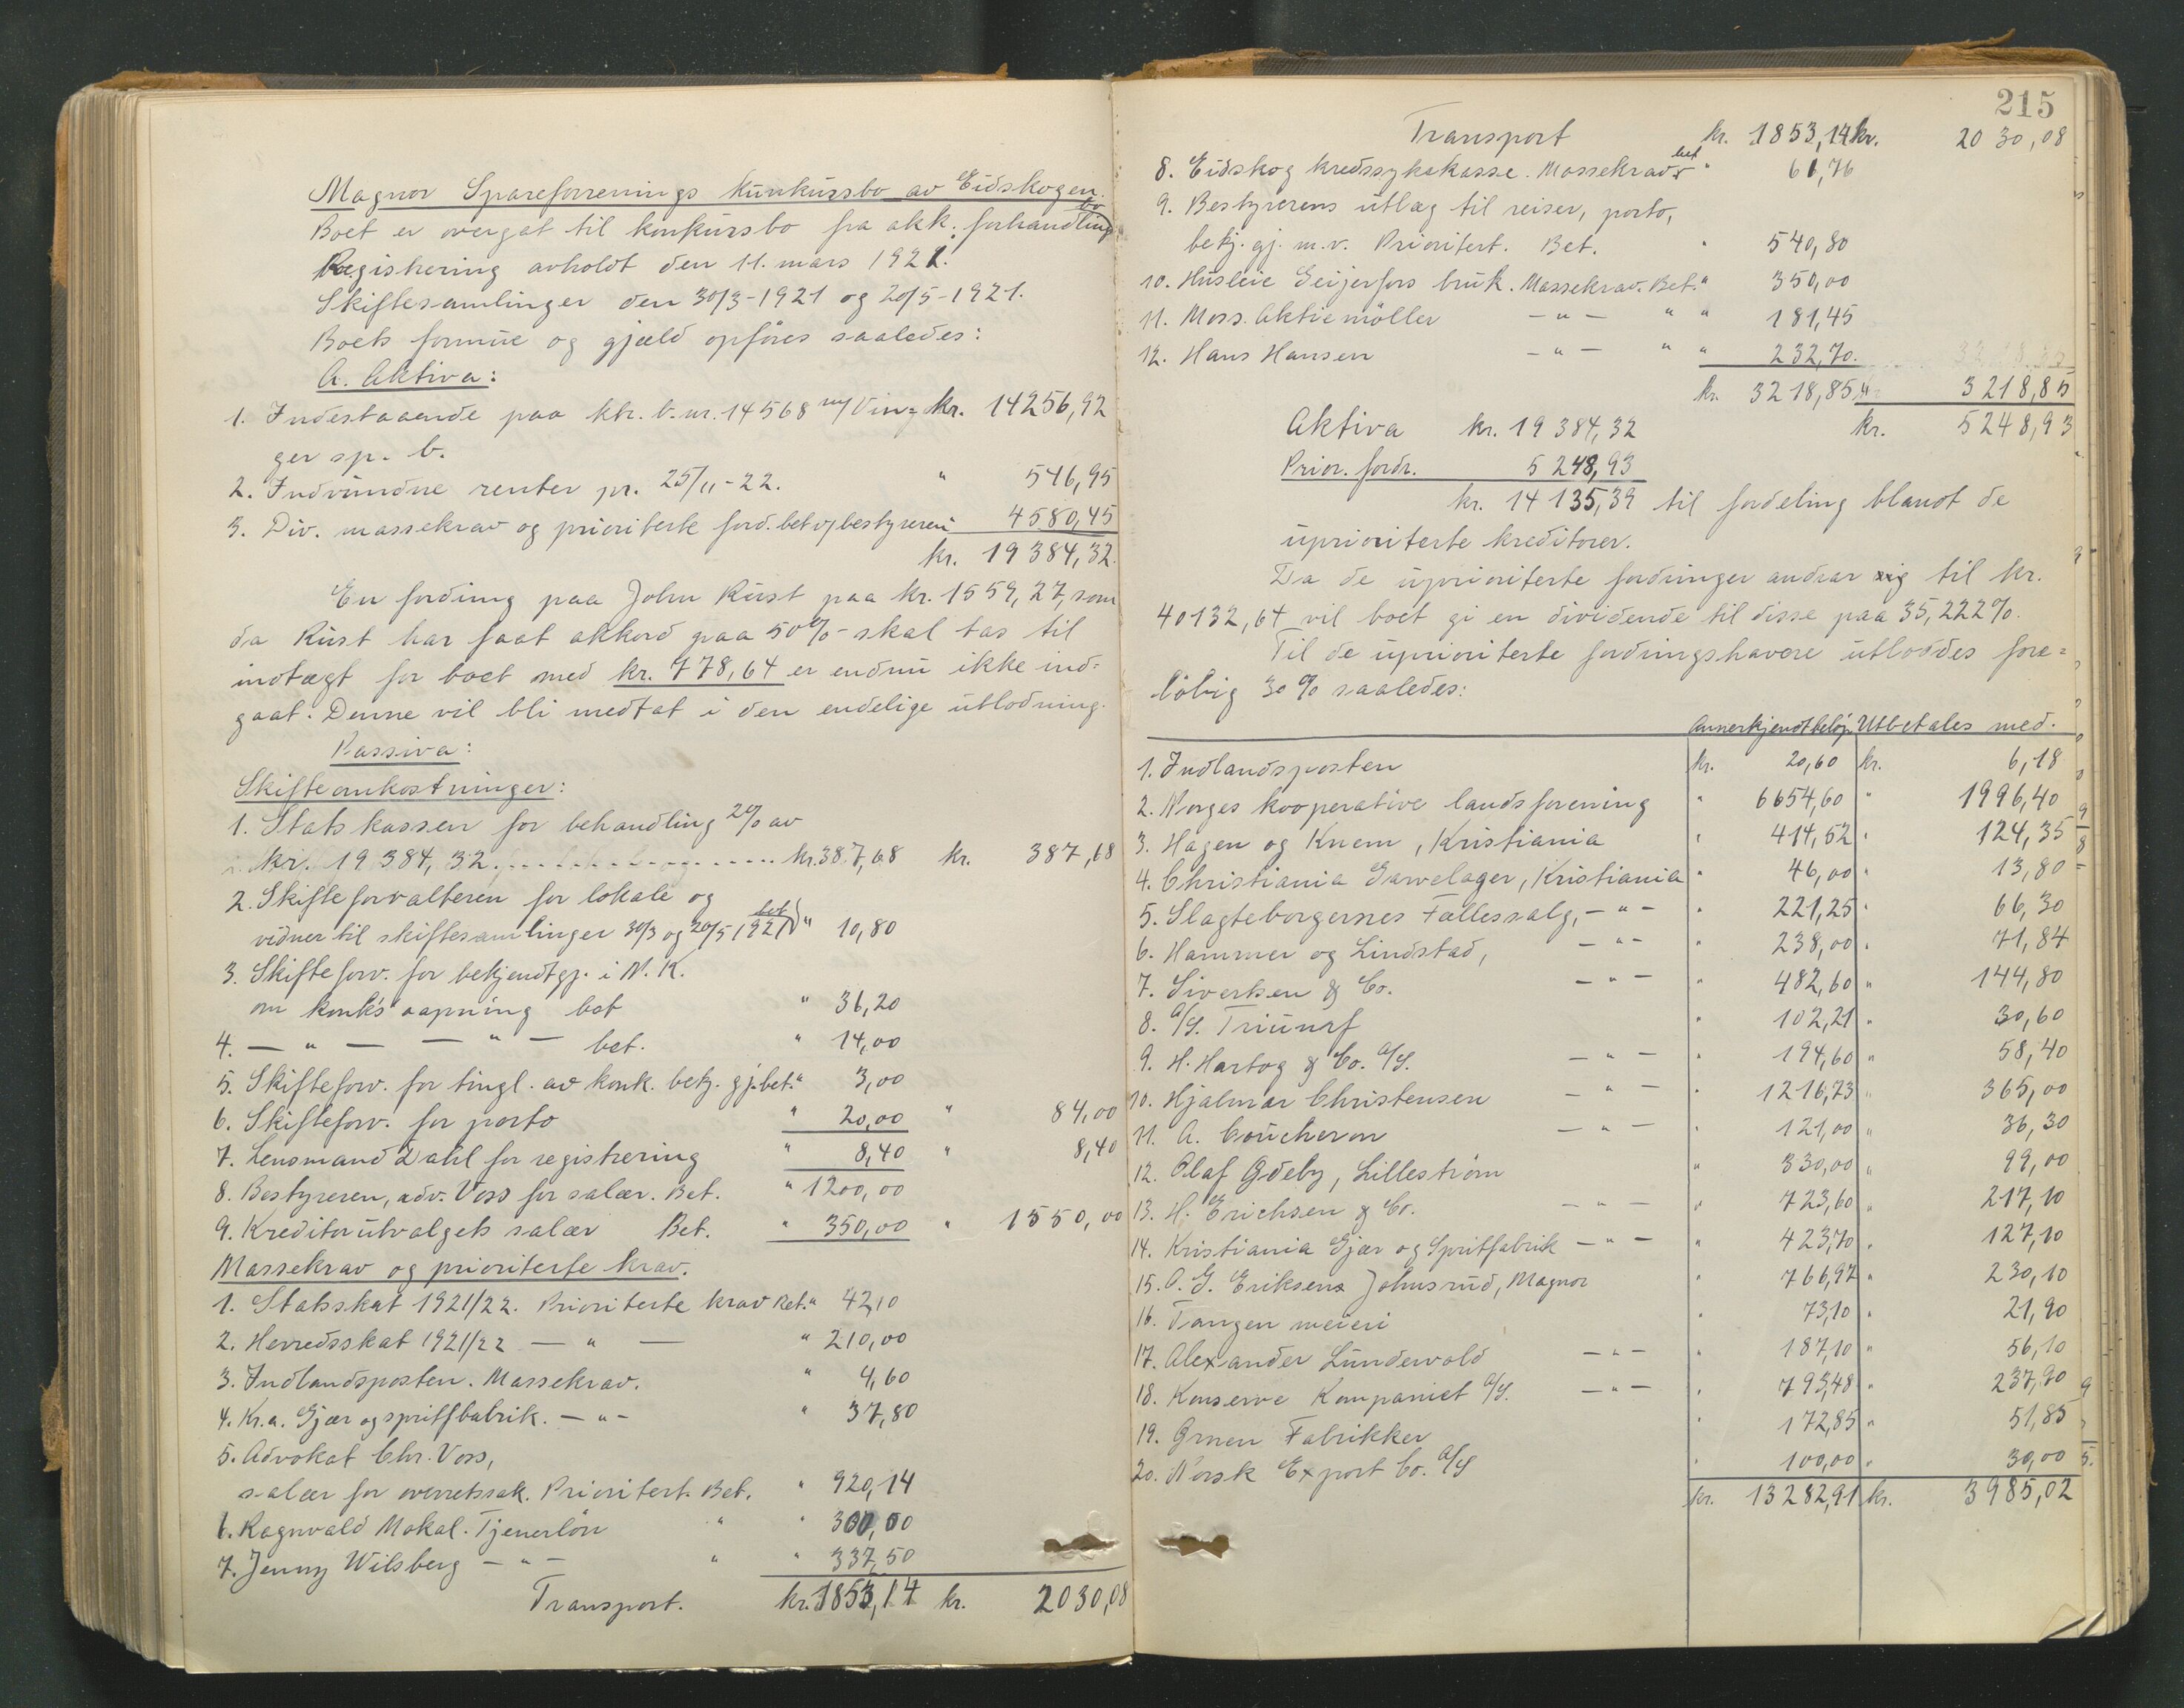 Magnor Spareforrenings kunkursbo av Eidskogen.
Boet er overgat til konkursbo fra akk. forhandlingbo
Registrering avholdt den 11. mars 1921.
Skiftesamlinger den 30/3-1921 og 20/5-1921.
Boets formue og gjæld opføres saaledes:
A. Aktiva:
1. Indestaaende paa ktr. b. nr. 14568 m/Vin- kr. 14256,92
ger sp. b.
2. Indvundne renter pr. 25/11-22. " 546,95
3. Div. massekrav og prioriterte ford. bet v/bestyreren 4580,45
kr. 19384,32.
En fordring paa John Rust paa kr. 1559,27, som
da Rust har faat akkord paa 50%- skal tas til
indtægt for boet med kr. 778,64 er endnu ikke ind=
gaat. Denne vil bli medtat i den endelige utlodning.
Passiva:
Skifteomkostninger:
1. Statskassen for behandling 2% av
kr. 19384,32. kr. 387,68 kr. 387,68
2. Skifteforvalteren for lokale og
vidner til skiftesamlinger 30/3 og 20/5 1921 bet " 10,80
3. Skifteforv. for bekjendtgj. i N. K.
om konk's aapning bet " 36,20
4. — " — — " — bet. " 14,00
5. Skifteforv. for tingl. av konk. bekj. gj. bet. " 3,00
6. Skifteforv. for porto " 20,00 " 84,00
7. Lensmand Dahl for registrering " 8,40 " 8,40
8. Bestyreren, adv. Voss for salær. Bet. " 1200,00
9. Kreditorutvalgets salær Bet. " 350,00 " 1550,00
Massekrav og prioriterte krav.
1. Statsskat 1921/22. Prioriterte krav Bet. " 42,10
2. Herredsskat 1921/22 — " — " 210,00
3. Indlandsposten. Massekrav. " 4,60
4. Kr.a. Gjær og spritfbabrik. — " — " 37,80
5. Advokat Chr. Voss,
salær for overretssak. Prioritert. Bet. " 920,14
6. Ragnvald Mokal. Tjenerløn " " 300,00
7. Jenny Wilsberg — " — " " 337,50
Transport. kr. 1853,14 kr. 2030,08
215
Transport kr. 1853,14 kr. 2030,08
8. Eidskog kredssykekasse. Massekrav bet " 61,76
9. Bestyrerens utlæg til reiser, porto,
bekj. gj. m.v. Prioritert. Bet. " 540,80
10. Husleie Geijerfors bruk. Massekrav. Bet. " 350,00
11. Moss. Aktiemöller — " — " " 181,45
12. Hans Hansen — " — " " 232,70.
kr. 3218,85 " 3218,85
Aktiva kr. 19384,32 kr. 5248,93
Prior. fordr. 5248,93
kr. 14135,39 til fordeling blandt de
uprioriterte kreditorer.
Da de uprioriterte fordringer andrar sig til kr.
40132,64 vil boet gi en dividende til disse paa 35,222%.
Til de uprioriterte fordringshavere utloddes fore=
löbig 30% saaledes:
Annerkjendt beløp Utbetales med.
1. Indlandsposten kr. 20,60 kr. 6,18
2. Norges kooperative landsforening " 6654,60 " 1996,40
3. Hagen og Knem, Kristiania " 414,52 " 124,35
4. Christiania Garvelager, Kristiania " 46,00 " 13,80
5. Slagteborgernes Fællessalg, — " — " 221,25 " 66,30
6. Hammer og Lindstad, — " — " 238,00 " 71,84
7. Sivertsen & Co. — " — " 482,60 " 144,80
8. A/S. Triumf " 102,21 " 30,60
9. H. Hartog & Co. A/S. — " — " 194,60 " 58,40
10. Hjalmar Christensen — " — " 1216,73 " 365,00
11. A. Coucheron — " — " 121,00 " 36,30
12. Olaf Gdeby, Lilleström " 330,00 " 99,00
13. H. Erichsen & Co. — " — " 723,60 " 217,10
14. Kristiania Gjær og Spritfabrik — " — " 423,70 " 127,10
15. O. G. Eriksens Johnsrud, Magnor " 766,97 " 230,10
16. Tangen meieri " 73,10 " 21,90
17. Alexander Lundevold — " — " 187,10 " 56,10
18. Konserve Kompaniet A/S. — " — " 793,48 " 237,90
19. Grnen Fabrikker " 172,85 " 51,85
20. Norsk Export Co. A/S " 100,00 " 30,00
kr. 13282,91 kr. 3985,02